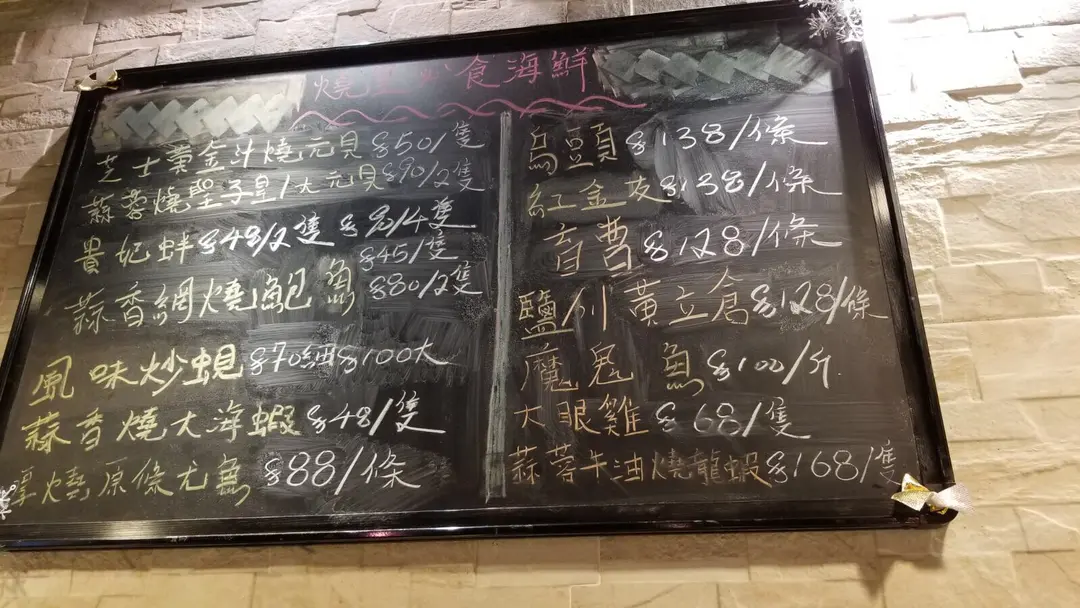 燒 食海鮮
芝士黃金斗燒元貝 $50/隻
蒜蓉燒聖子皇/大元貝 $90/2隻
貴妃蚌 $48/2隻 $90/4隻
蒜香網燒鮑魚 $45/隻 $80/2隻
風味炒蜆 $70細 $100大
蒜香燒大海蝦 $48/隻
厚燒原條尤魚 $88/條
烏豆頁 $138/條
紅金皮 $138/條
盲曹 $128/條
鹽川黃立倉 $128/條
魔鬼魚 $100/斤
大眼雞 $68/隻
蒜蓉牛油燒龍蝦 $168/隻